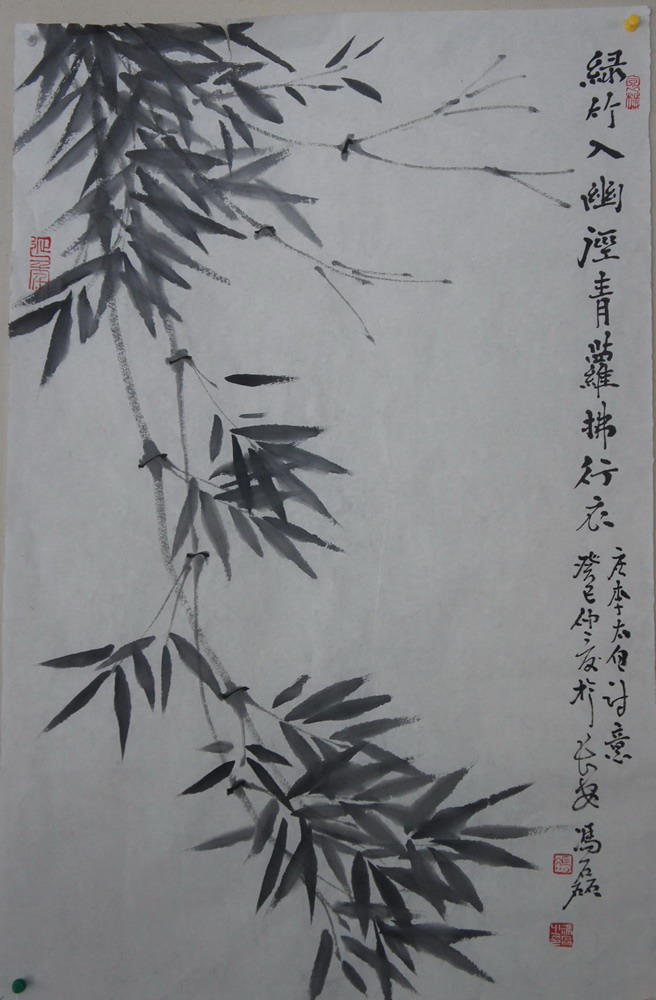 緑竹入幽徑青蘿拂行衣
唐李太白詩意
癸巳仲夏於长安 馮磊